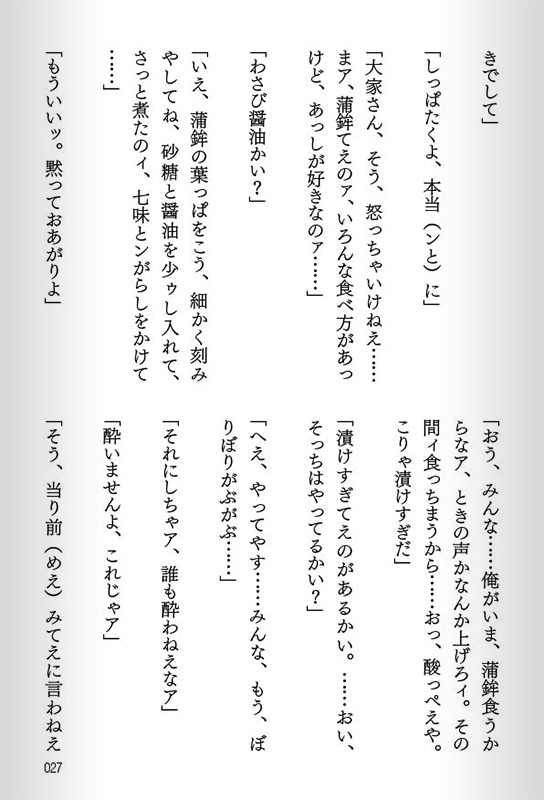 きでして」
「しっぱたくよ、本当（ンと）に」
「大家さん、そう、怒っちゃいけねえ……
まァ、蒲鉾てえのァ、いろんな食べ方があっ
けど、あっしが好きなのァ……」
「わさび醤油かい？」
「いえ、蒲鉾の葉っぱをこう、細かく刻み
やしてね、砂糖と醤油を少ゥし入れて、
さっと煮たのィ、七味とンがらしをかけて
……」
「もういいッ。黙っておあがりよ」
「おう、みんな……俺がいま、蒲鉾食うか
らなァ、ときの声かなんか上げろィ。その
間ィ食っちまうから……おっ、酸っぺえや。
こりゃ漬けすぎだ」
「漬けすぎてえのがあるかい。……おい、
そっちはやってるかい？」
「へえ、やってやす……みんな、もう、ぼ
りぼりがぶがぶ……」
「それにしちゃァ、誰も酔わねえなァ」
「酔いませんよ、これじゃァ」
「そう、当り前（めえ）みてえに言わねえ
027